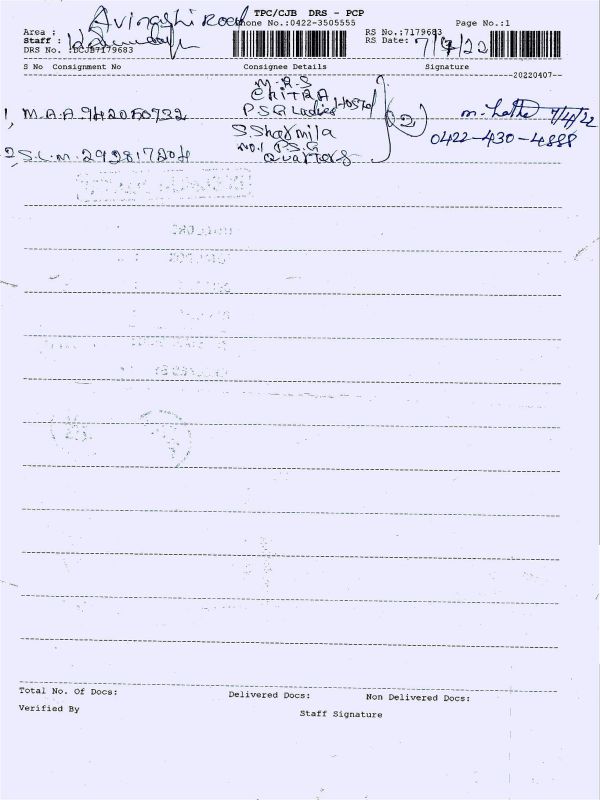 TPC/CJB DRS - PCP
Page No.:1
Area : Avinashi Road
Phone No.:0422-3505555
RS No.:7179683
Staff :
RS Date: 7/4/22
DRS No. :DCJB7179683
S No Consignment No Consignee Details Signature
20220407
M.A.S
CHITRA
1, M.A.A 942050932 P.S.G Ladies Hostel (2) 7/4/22
S. Sharmila 0422-430-4888
No.1 P.S.G
2, S.L.M. 292817204 Quarters
Total No. Of Docs: Delivered Docs: Non Delivered Docs:
Verified By Staff Signature